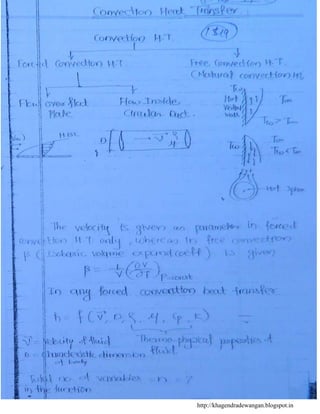 Convection Heat Transfer
Convection H.T.
Forced Convection H.T. Free Convection H.T.
(Natural convection H.T.)
Flow over flat Flow Inside
Plate Circular Duct.
H.B.L
D
Hot
Vertical
T∞
Hot Sphere
The velocity is given as parameter in forced
convection H.T. only, whereas in free convection
β (Isobaric volume expansion coeff) is given
β = 1/V (∂V/∂T) P=const
In any forced convection heat transfer
h = f (V, D, ρ, μ, Cp, K)
V = velocity of fluid Thermo-physical properties of
D = characteristic dimension fluid.
of body
Total no. of variables = n = 7
in the function
http://khagendradewangan.blogspot.in